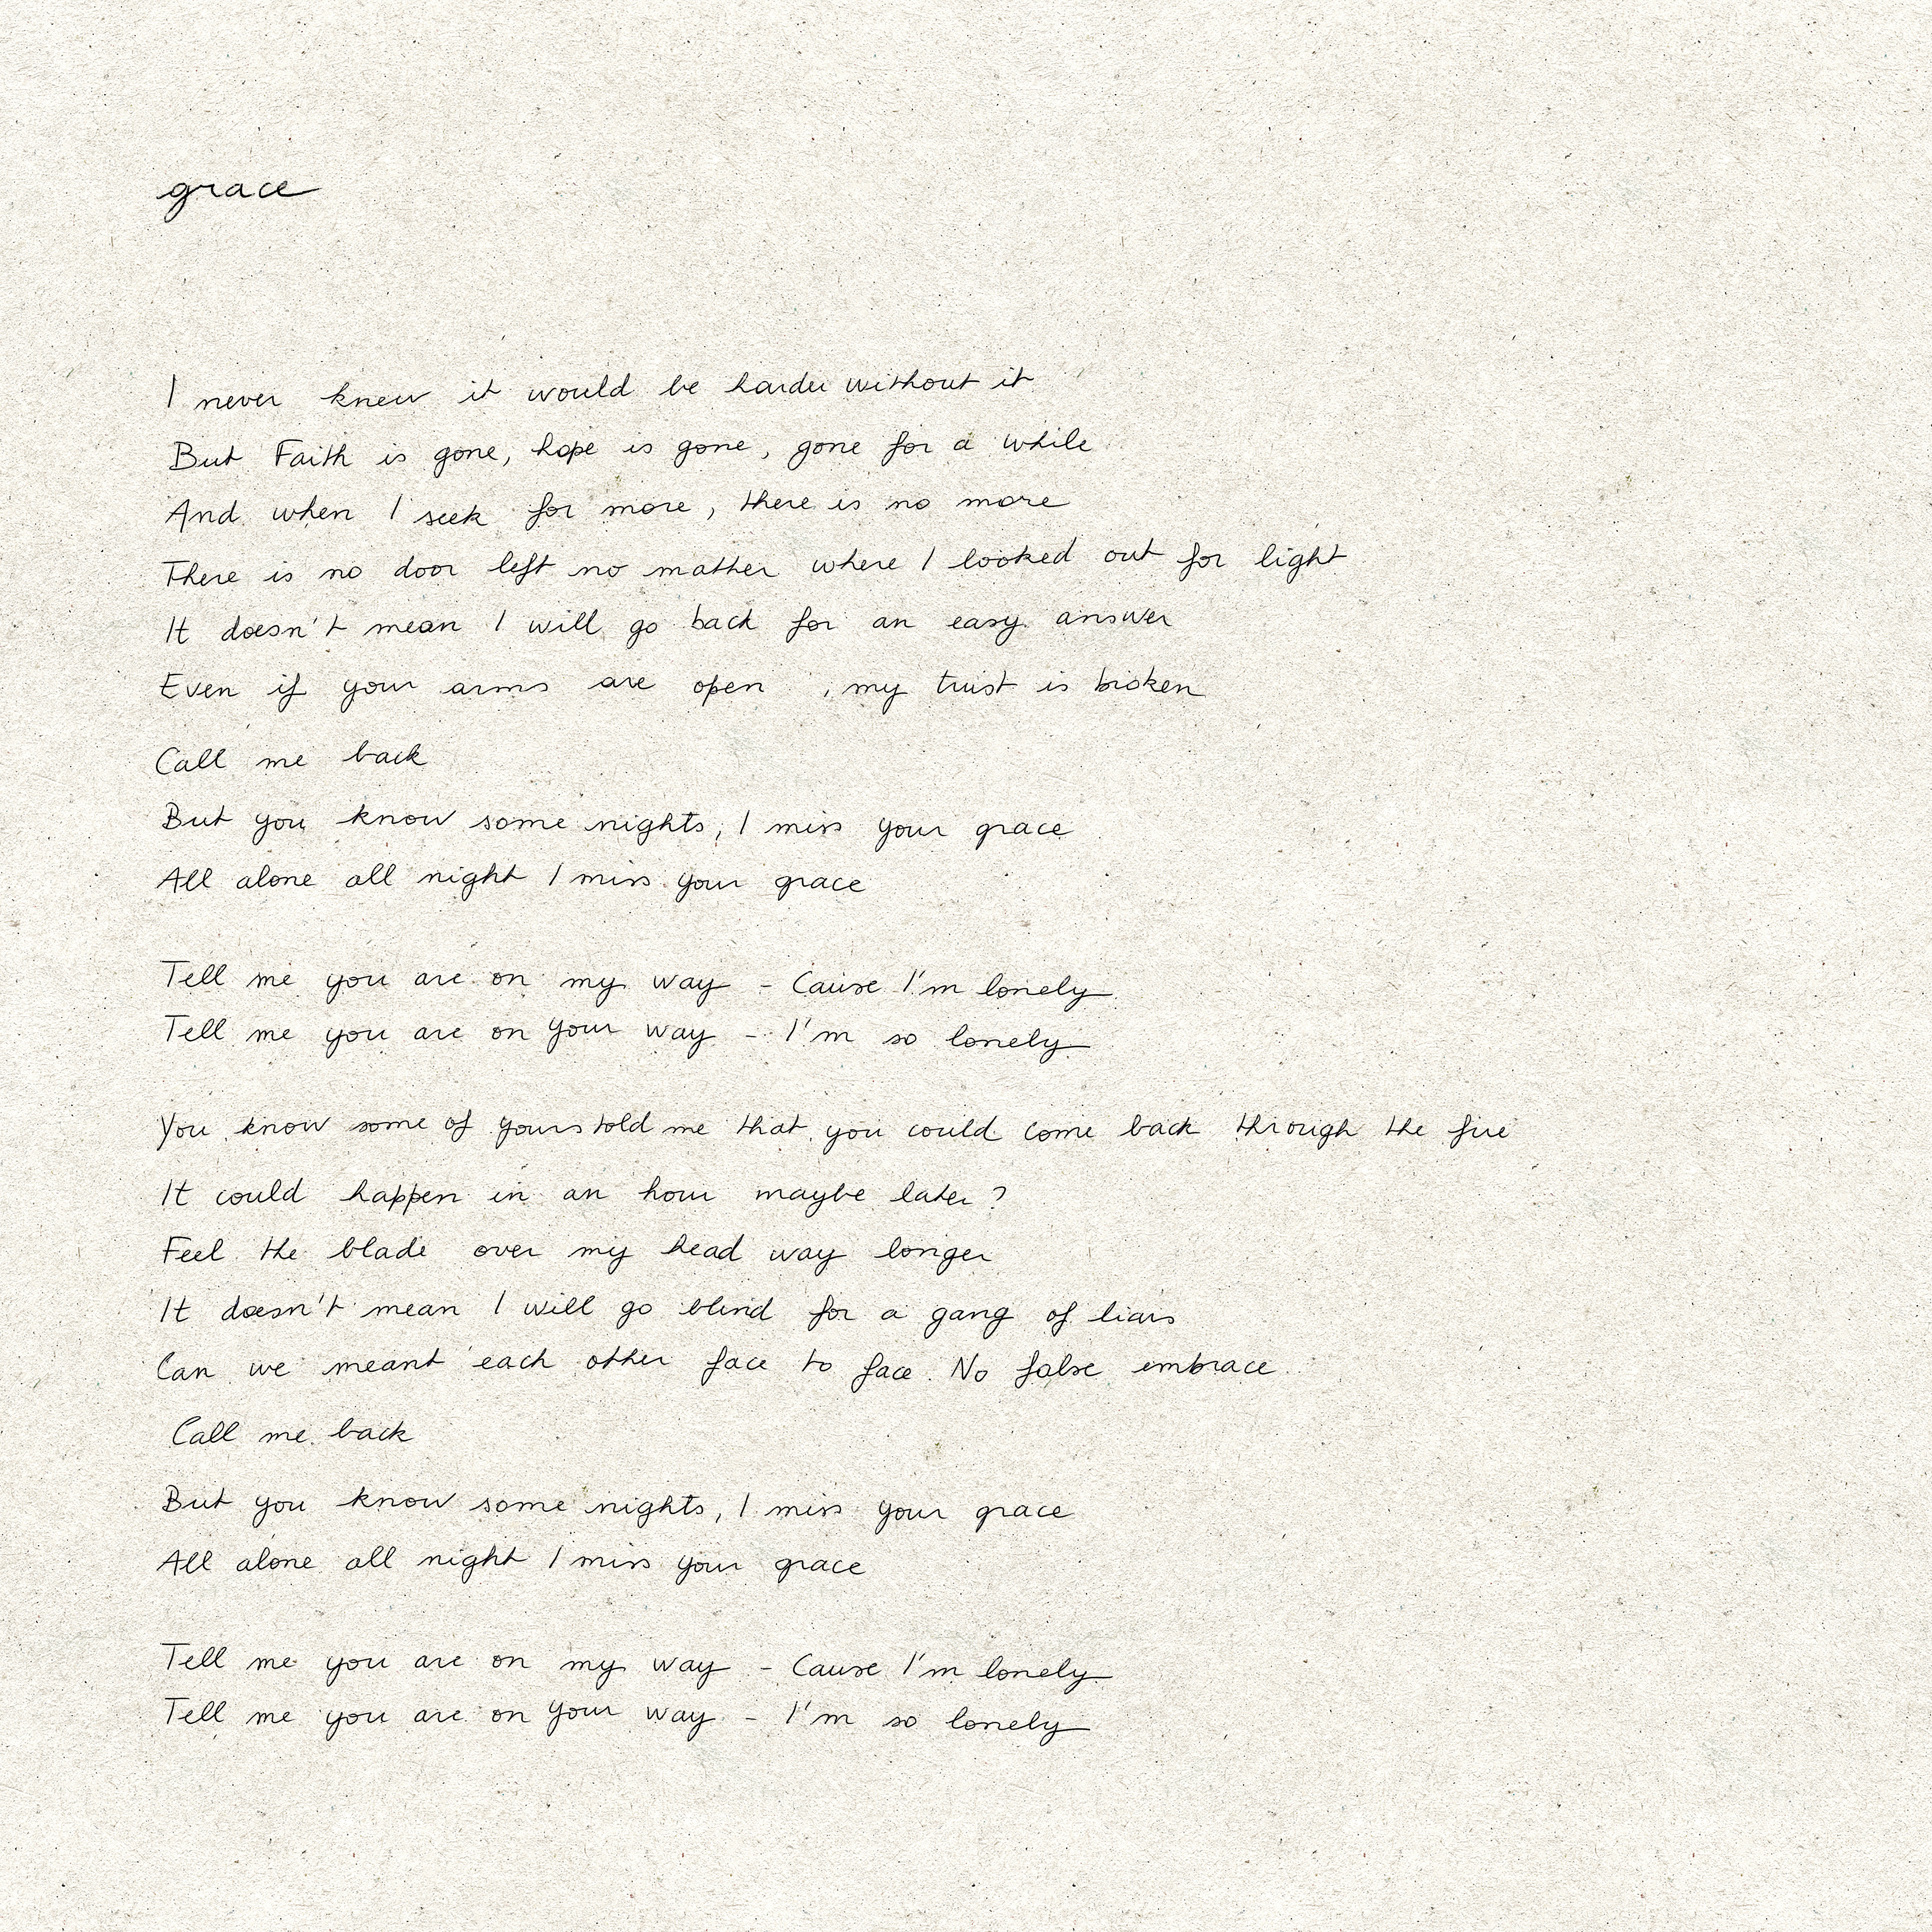 grace
I never knew it would be harder without it
But Faith is gone, hope is gone, gone for a while
And when I seek for more, there is no more
There is no door left no mather where I looked out for light
It doesn't mean I will go back for an easy answer
Even if your arms are open , my trust is broken
Call me back
But you know some nights, I miss your grace
All alone all night I miss your grace
Tell me you are on my way - Cause I'm lonely
Tell me you are on your way - I'm so lonely
You know some of yours told me that you could come back through the fire
It could happen in an hour maybe later?
Feel the blade over my head way longer
It doesn't mean I will go blind for a gang of liars
Can we meant each other face to face. No false embrace
Call me back
But you know some nights, I miss your grace
All alone all night I miss your grace
Tell me you are on my way - Cause I'm lonely
Tell me you are on your way - I'm so lonely